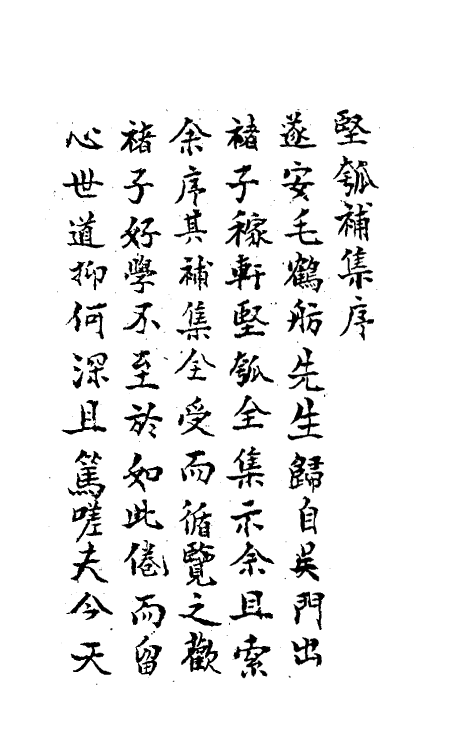 堅瓠補集序
遂安毛鶴舫先生歸自吳門出
褚子稼軒堅瓠全集示余且索
余序其補集余受而循覽之歡
褚子好學不至於如此倦而留
心世道抑何深且篤嗟夫今天